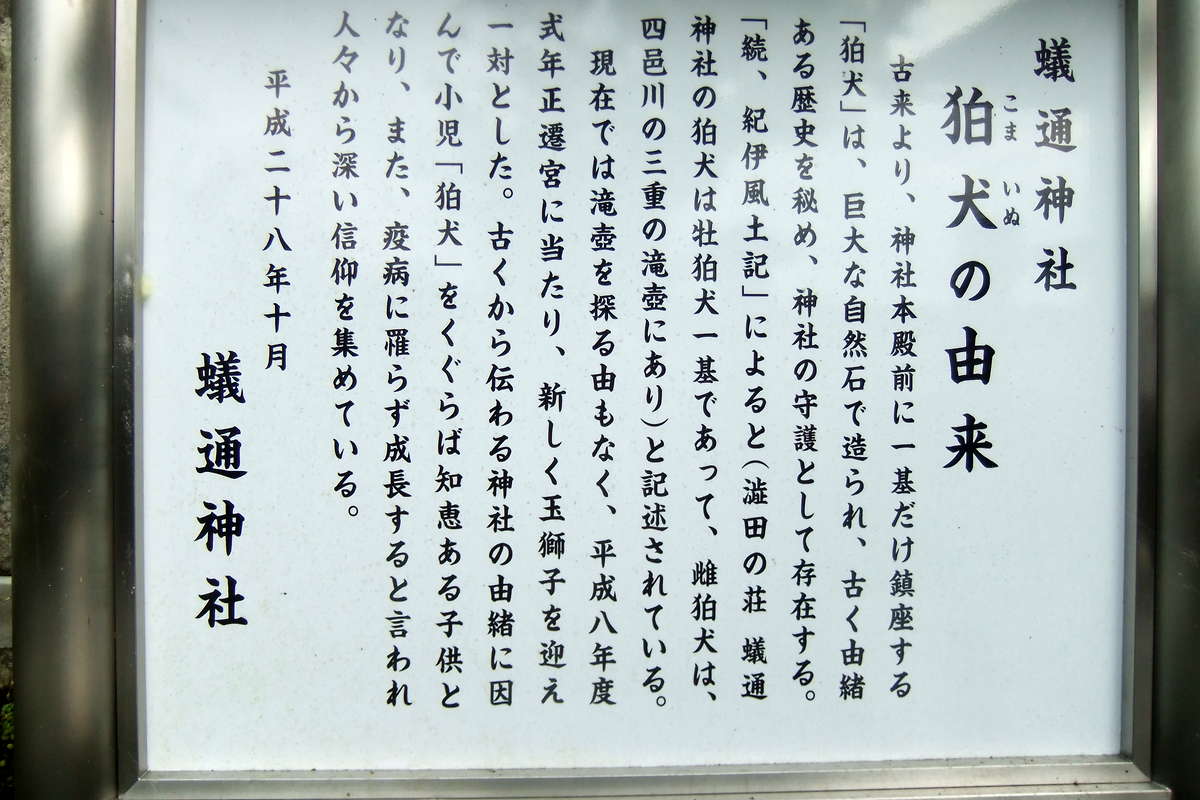 蟻通神社
こま いぬ
狛犬の由来
古来より、神社本殿前に一基だけ鎮座する
「狛犬」は、巨大な自然石で造られ、古く由緒
ある歴史を秘め、神社の守護として存在する。
「続、紀伊風土記」によると(澁田の荘 蟻通
神社の狛犬は牡狛犬一基であって、雌狛犬は、
四邑川の三重の滝壺にあり)と記述されている。
現在では滝壺を探る由もなく、平成八年度
式年正遷宮に当たり、新しく玉獅子を迎え
一対とした。古くから伝わる神社の由緒に因
んで小児「狛犬」をくぐらば知恵ある子供と
なり、また、疫病に罹らず成長すると言われ
人々から深い信仰を集めている。
平成二十八年十月
蟻通神社